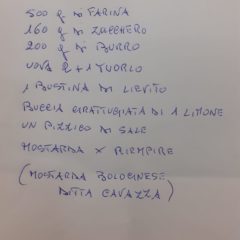 500 g di FARINA
160 g di ZUCCHERO
200 g di BURRO
UOVA 2 + 1 TUORLO
1 BUSTINA DI LIEVITO
BUCCIA GRATTUGIATA DI 1 LIMONE
UN PIZZICO DI SALE
MOSTARDA X RIEMPIRE
(MOSTARDA BOLOGNESE
DITTA CAVAZZA)